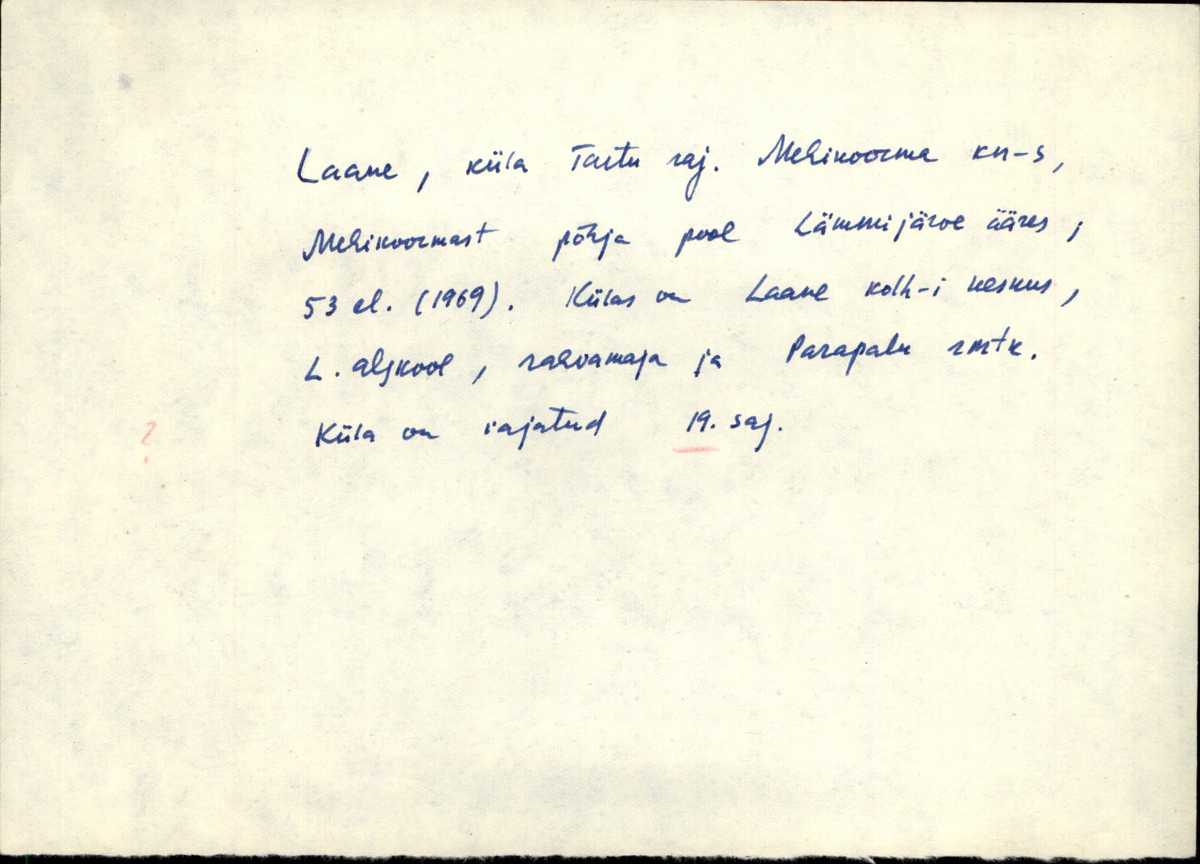 Laane, küla Tartu raj. Mehikoorma kn-s,
Mehikoormast põhja pool Lämmijärve ääres;
53 el. (1969). Külas on Laane kolh-i keskus,
L. algkool, rahvamaja ja Parapalu rmtk.
?
Küla on rajatud 19. saj.